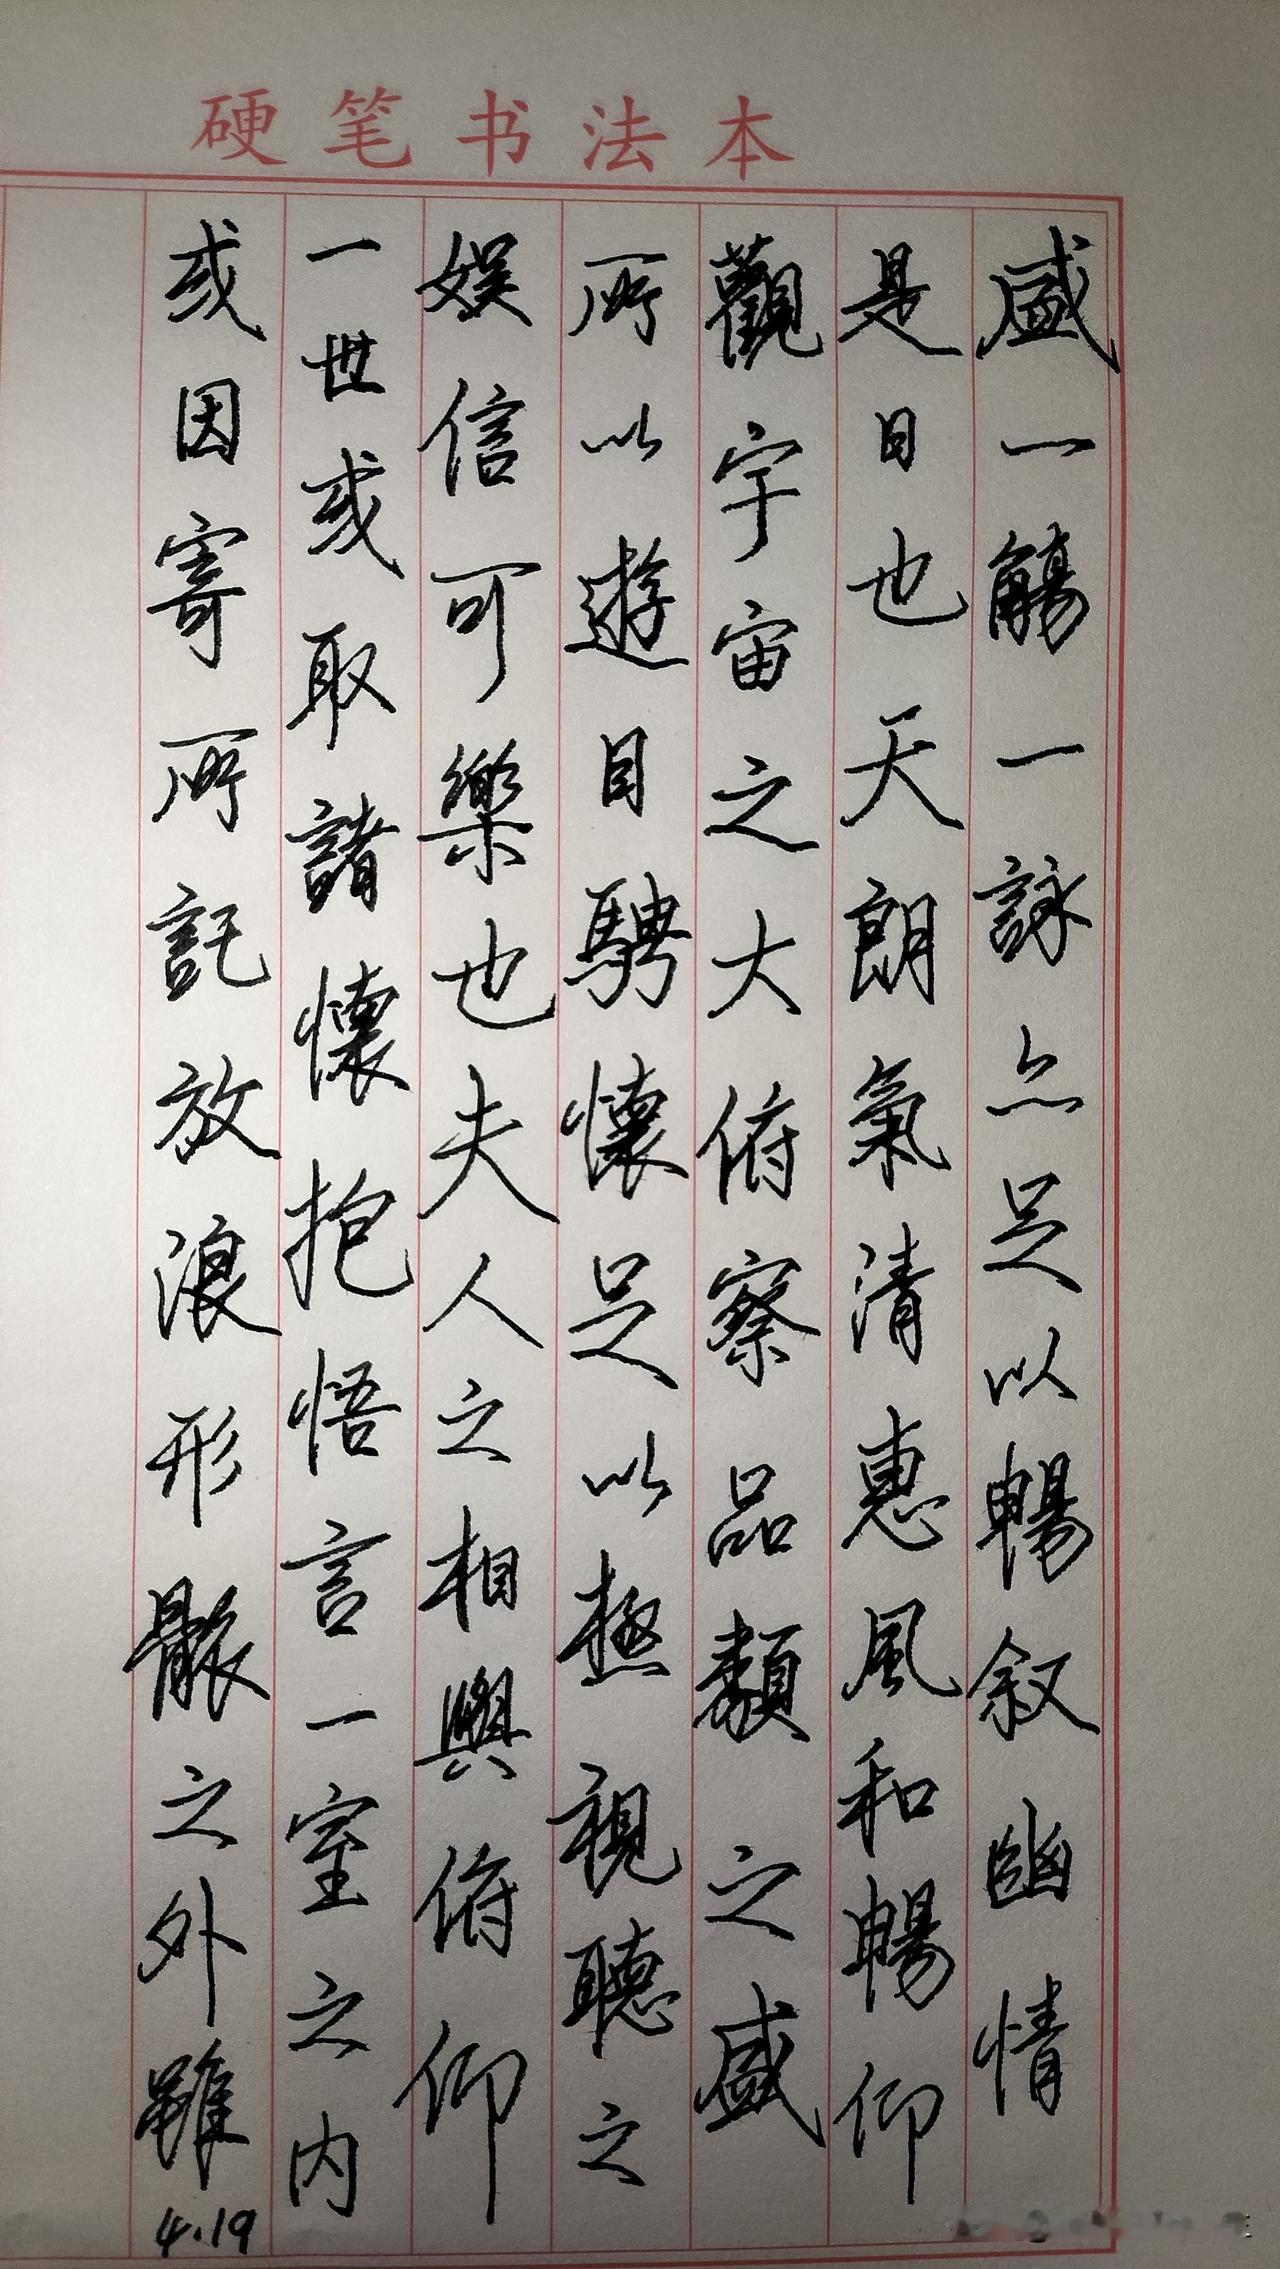 硬笔书法本
盛一觴一詠亦足以暢叙幽情
是日也天朗氣清惠風和暢仰
觀宇宙之大俯察品類之盛
所以遊目騁懷足以極視聽之
娱信可樂也夫人之相與俯仰
一世或取諸懷抱悟言一室之内
或因寄所託放浪形骸之外雖
4.19